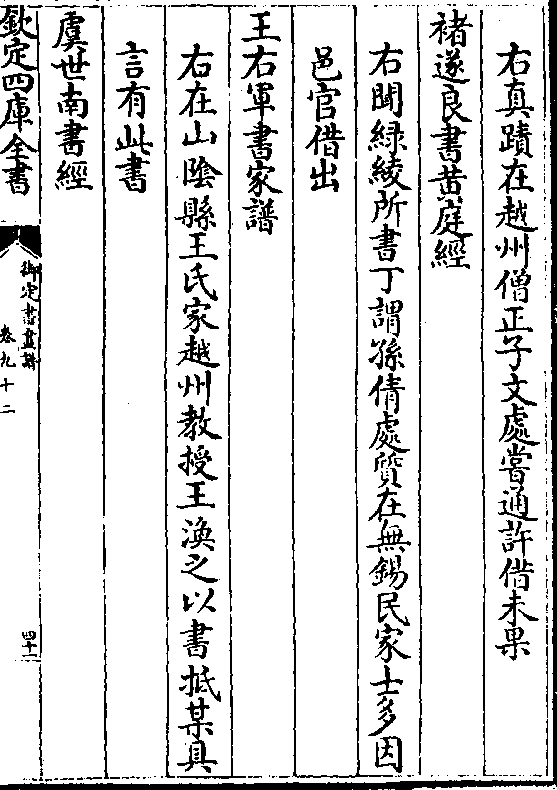 右真蹟在越州僧正子文處嘗通許借未果
褚遂良書黄庭經
右聞緑綾所書丁謂孫倩處質在無錫民家士多因
邑官借出
王右軍書家譜
右在山隂縣王氏家越州教授王渙之以書抵某具
言有此書
虞世南書經
欽定四庫全書
御定書畫譜
卷九十二
四十二